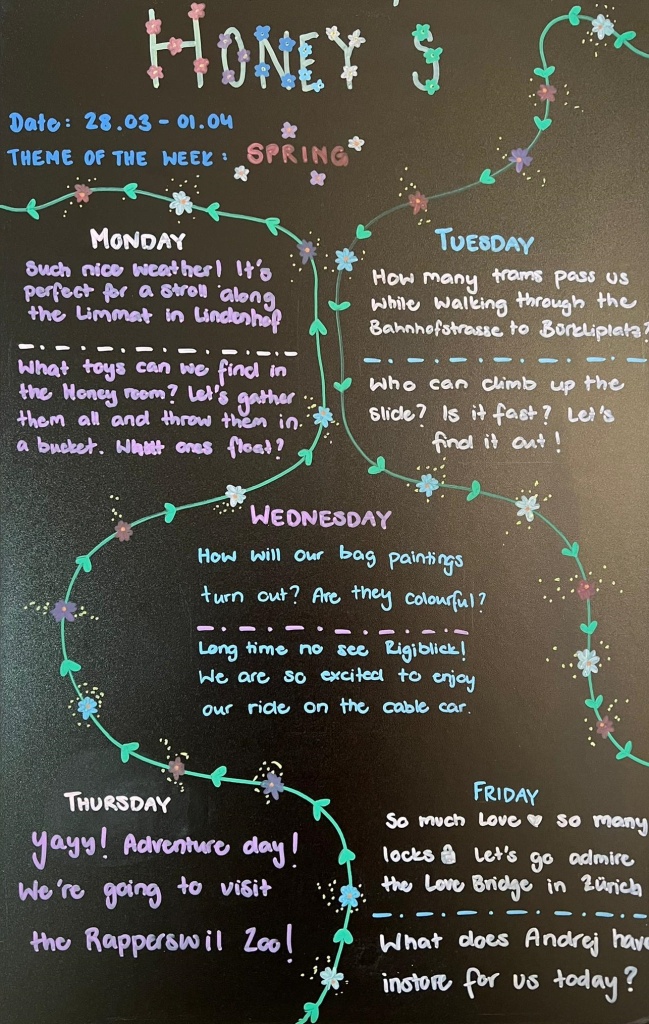 HONEY'S
Date: 28.03 - 01.04
THEME OF THE WEEK: SPRING
MONDAY
Such nice weather! It's
perfect for a stroll along
the Limmat in Lindenhof
What toys can we find in
the Honey room? Let's gather
them all and throw them in
a bucket. What ones float?
TUESDAY
How many trams pass us
while walking through the
Bahnhofstrasse to Bürkliplatz?
Who can climb up the
slide? Is it fast? Let's
find it out!
WEDNESDAY
How will our bag paintings
turn out? Are they colourful?
Long time no see Rigiblick!
We are so excited to enjoy
our ride on the cable car.
THURSDAY
Yayy! Adventure day!
We're going to visit
the Rapperswil Zoo!
FRIDAY
So much Love ♥ so many
locks 🔒 Let's go admire
the Love Bridge in Zürich
What does Andrej have
instore for us today?